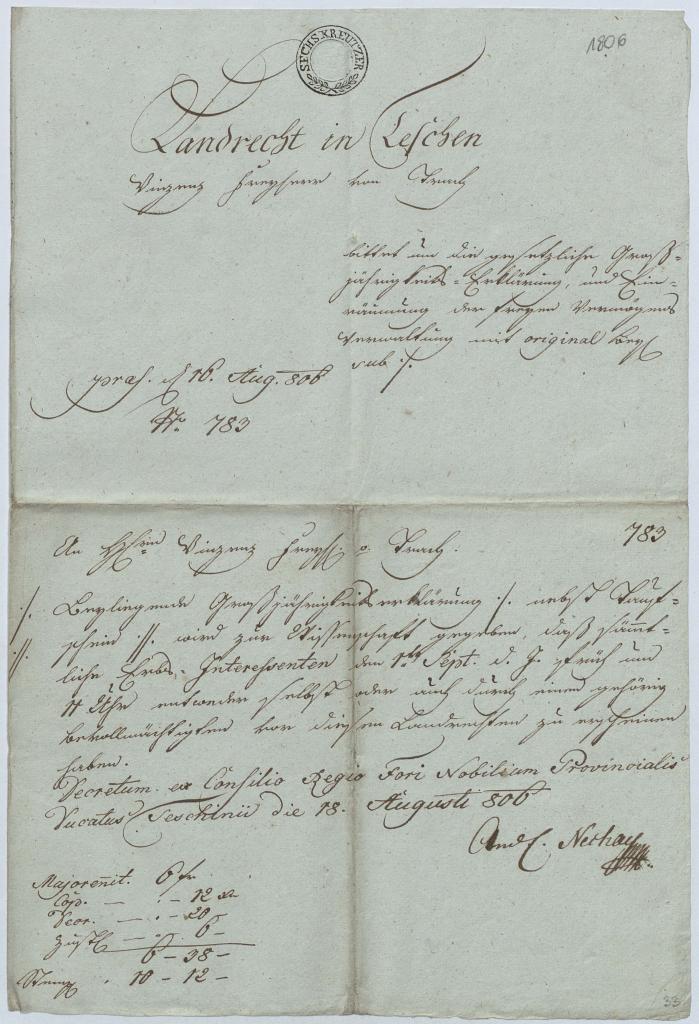 1806
SECHS KREUTZER
Landrecht in Teschen
Vinzenz Freyherr von Trach
bittet um die gesetzliche Groß-
jährigkeits-Erklärung, und Ein-
räumung der freyen Vermögens
Verwaltung mit original Beyl
sub ·/.
præs. d 16. Aug. 806
N° 783
783
An H Vinzenz Freyh. v. Trach.
·/. Beyliegende Großjährigkeitserklärung ·/. nebst Tauf-
·//. schein ·//. wird zur Wissenschaft gegeben, daß sämmt-
liche Erbs-Interessenten den 1ten Sept. d. J. früh um
11 Uhr entweder selbst oder auch durch einen gehörig
bevollmächtigten vor diesen Landrechten zu erscheinen
haben.
Decretum ex Consilio Regio Fori Nobilium Provincialis
Ducatus Teschinii die 18. Augusti 806
And. Nechay
Majorennit. 6 fr
Cop. — · — 12 xr
Decr. — · — 20
Zustl — · — 6 —
6 — 38 —
Stemp · 10 — 12 —
33